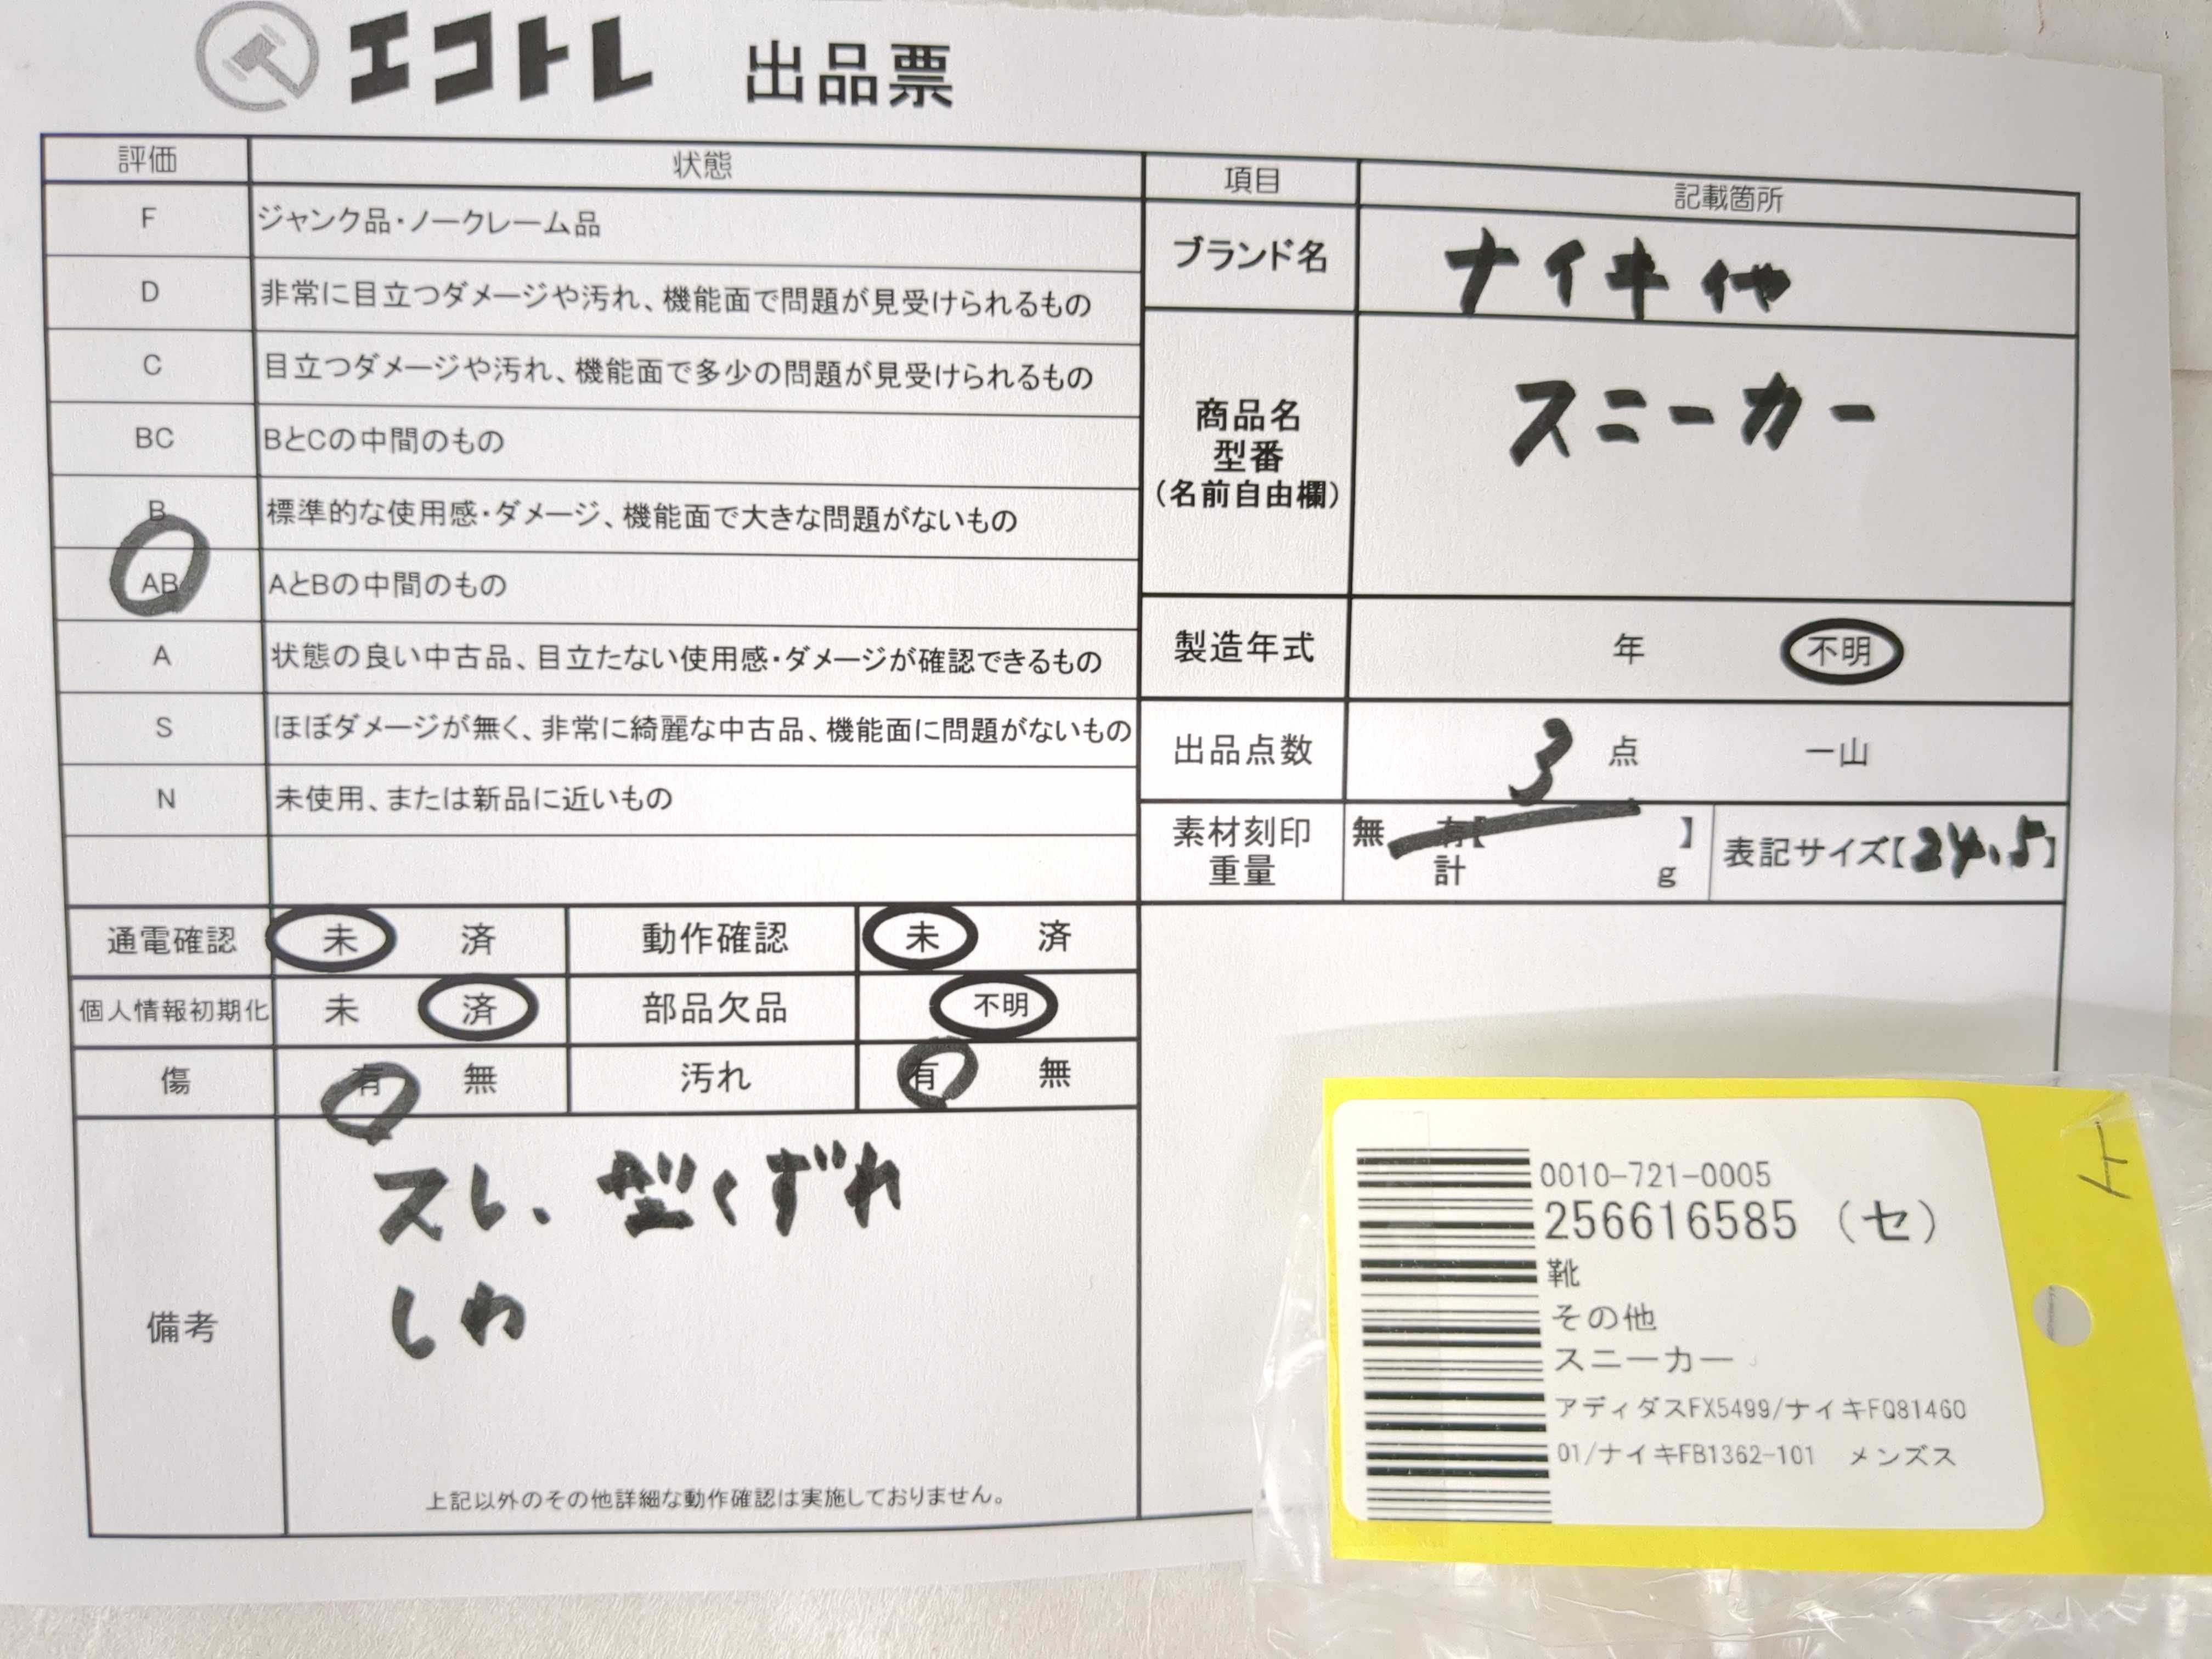 エコトレ 出品票
評価 状態
F ジャンク品・ノークレーム品
D 非常に目立つダメージや汚れ、機能面で問題が見受けられるもの
C 目立つダメージや汚れ、機能面で多少の問題が見受けられるもの
BC BとCの中間のもの
B 標準的な使用感・ダメージ、機能面で大きな問題がないもの
AB AとBの中間のもの
A 状態の良い中古品、目立たない使用感・ダメージが確認できるもの
S ほぼダメージが無く、非常に綺麗な中古品、機能面に問題がないもの
N 未使用、または新品に近いもの
通電確認 未 済 動作確認 未 済
個人情報初期化 未 済 部品欠品 不明
傷 有 無 汚れ 有 無
備考
スレ、型くずれ
しわ
上記以外のその他詳細な動作確認は実施しておりません。
項目 記載箇所
ブランド名 ナイキ他
商品名
型番
(名前自由欄)
スニーカー
製造年式 年 不明
出品点数 3 点 一山
素材刻印
重量
無 有【 】
計 g
表記サイズ【24.5】
0010-721-0005
256616585 (セ)
靴
その他
スニーカー
アディダスFX5499/ナイキFQ81460
01/ナイキFB1362-101 メンズス